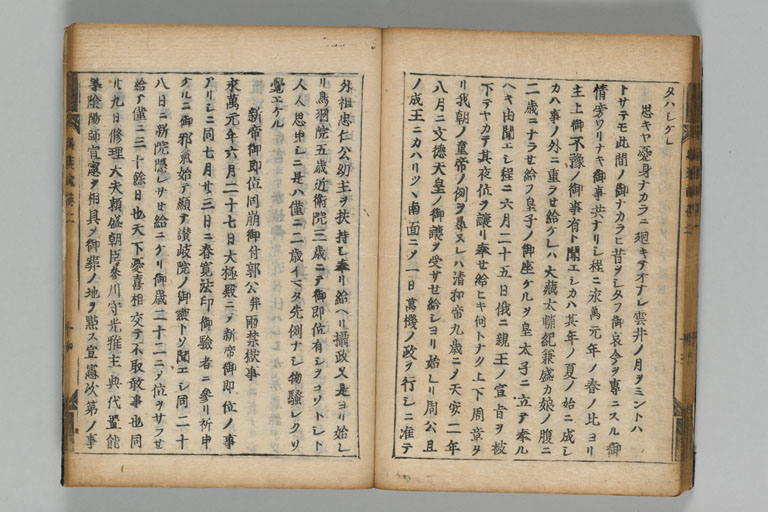 タハシケレ
思キヤ憂身ナカラニ廻キテオナシ雲井ノ月ヲミントハ
トサテモ此間ノ御ナカラヒ昔ヲシタフ御哀今ヲ專ニスル御
情旁ワリナキ御事共ナリシ程ニ永萬元年ノ春ノ比ヨリ
主上御不豫ノ御事有ト聞エシカハ其年ノ夏ノ始ニ成シ
カハ事ノ外ニ重ラセ給ケレハ大藏太輔紀兼盛カ娘ノ腹ニ
二歳ニナラセ給フ皇子ノ御座ケルヲ皇太子ニ立テ奉ル
ヘキ由聞エシ程ニ六月二十五日俄ニ親王ノ宣旨ヲ被
下テヤカテ其夜位ヲ讓リ奉セ給ヒキ何トナク上下周章タ
リ我朝ノ童帝ノ例ヲ尋ヌレハ清和帝九歳ニノ天安二年
八月ニ文德天皇ノ御讓ヲ受サセ給シヨリ始レリ周公旦
ノ成王ニカハリツヽ南面ニノ一日萬機ノ政ヲ行シニ准テ
外祖忠仁公幼主ヲ扶持シ奉リ給ヘリ攝政又是ヨリ始レ
リ鳥羽院五歳近衛院三歳ニテ御即位有シヲコソトシト
人人思申シニ是ハ僅ニ二歳イマタ先例ナシ物騷シクソ
覺エケル
新帝御即位同崩御付郭公幷雨禁獄事
永萬元年六月二十七日大極殿ニノ新帝御即位ノ事
アリシニ同七月廿三日ニ春寛法印御驗者ニ參リ祈申
ケルニ御邪氣始テ顯テ讃岐院ノ御靈トソ聞エシ同二十
八日ニ新院隱レサセ給ニケリ御歳二十二ニノ位ヲサラセ
給テ僅ニ三十餘日也天下憂喜相交テ不取敢事也同
廿九日修理大夫頼盛朝臣參川守光雅主典代置能
等陰陽師宣憲ヲ相具ノ御葬ノ地ヲ點ス宣憲次第ノ事